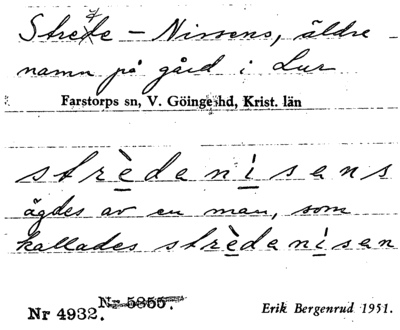 Strede – Nissens, äldre
namn på gård i Lur
Farstorps sn, V. Göinge hd, Krist. län
strèdenìsens
ägdes av en man, som
kallades strèdenìsen
Nr 4932. Nr 5855.
Erik Bergenrud 1951.